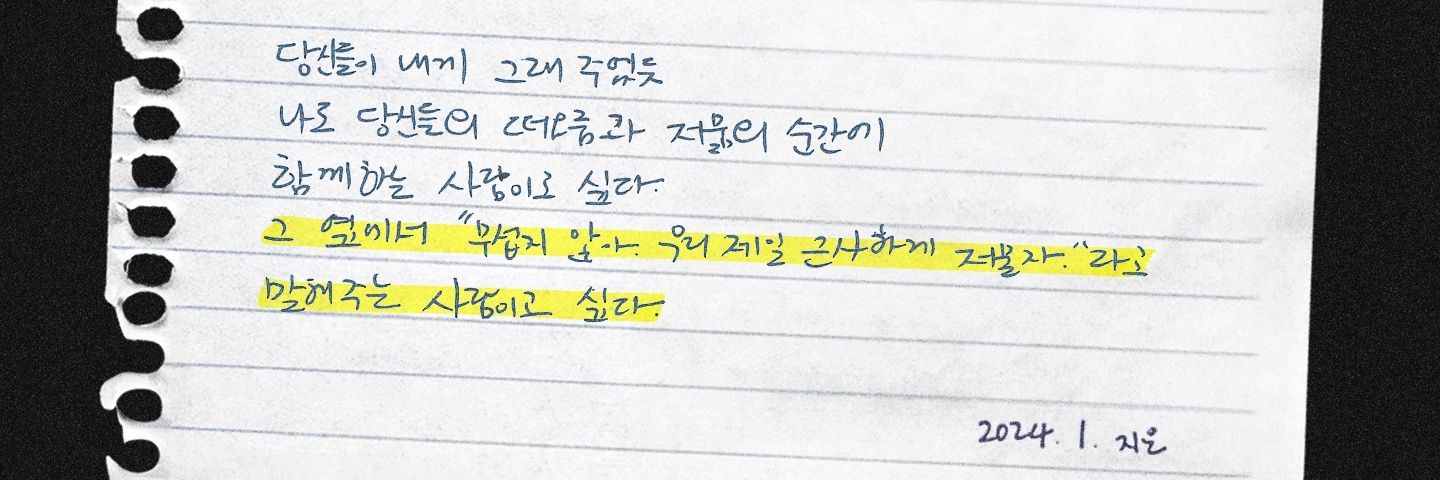 당신들이 내게 그래 주었듯
나도 당신들의 떠오름과 저묾의 순간에
함께하는 사람이고 싶다.
그 옆에서 "무섭지 않아. 우리 제일 근사하게 저물자."라고
말해주는 사람이고 싶다.
2024. 1. 지은